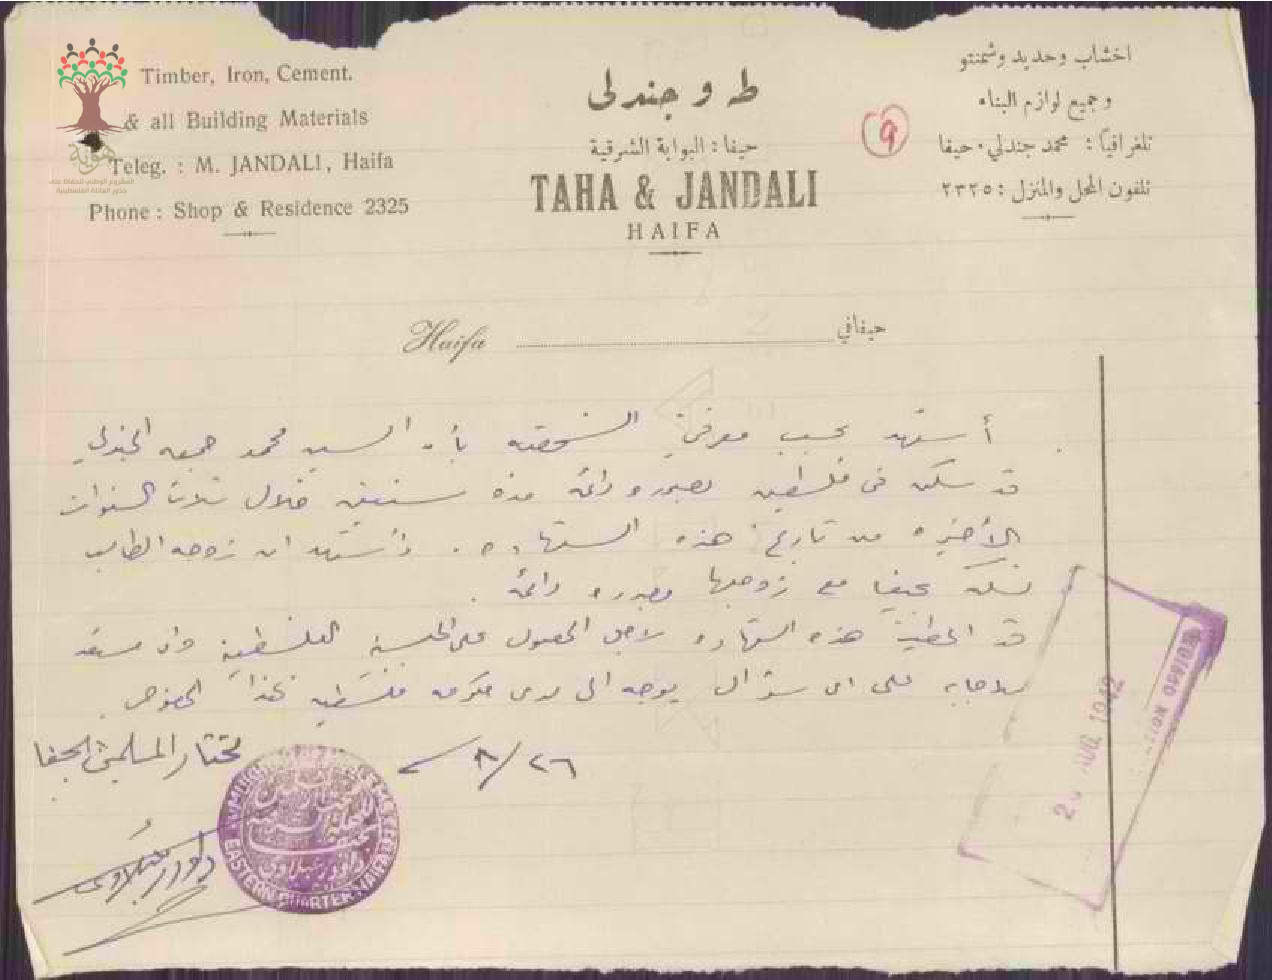 Timber, Iron, Cement.
& all Building Materials
Teleg. : M. JANDALI, Haifa
Phone : Shop & Residence 2325
طه و جندلي
حيفا : البوابة الشرقية
TAHA & JANDALI
HAIFA
اخشاب وحديد وشمنتو
وجميع لوازم البناء
تلغرافيًا : محمد جندلي . حيفا
تلفون المحل والمنزل : ٢٣٢٥
9
هوية
المشروع الوطني للحفاظ على
جذور العائلة الفلسطينية
Haifa حيفا في
أشهد بحسب معرفتي الشخصية بأن السيد محمد جمعه الجندلي
قد سكن في فلسطين بصوره دائمة مدة سنتين خلال ثلاث السنوات
الأخيره من تاريخ هذه الشهاده . وأشهد ان زوجه الطالب
تسكن بحيفا مع زوجها بصوره دائمة .
قد اعطيت هذه الشهاده لاجل الحصول على الجنسية الفلسطينية وان مستعد
للاجابه على اي سؤال يوجه الي من حكومة فلسطين بهذا الخصوص .
٢٦/٨
مختار المسلمين بحيفا
EASTERN QUARTER HAIFA
AUG 1942